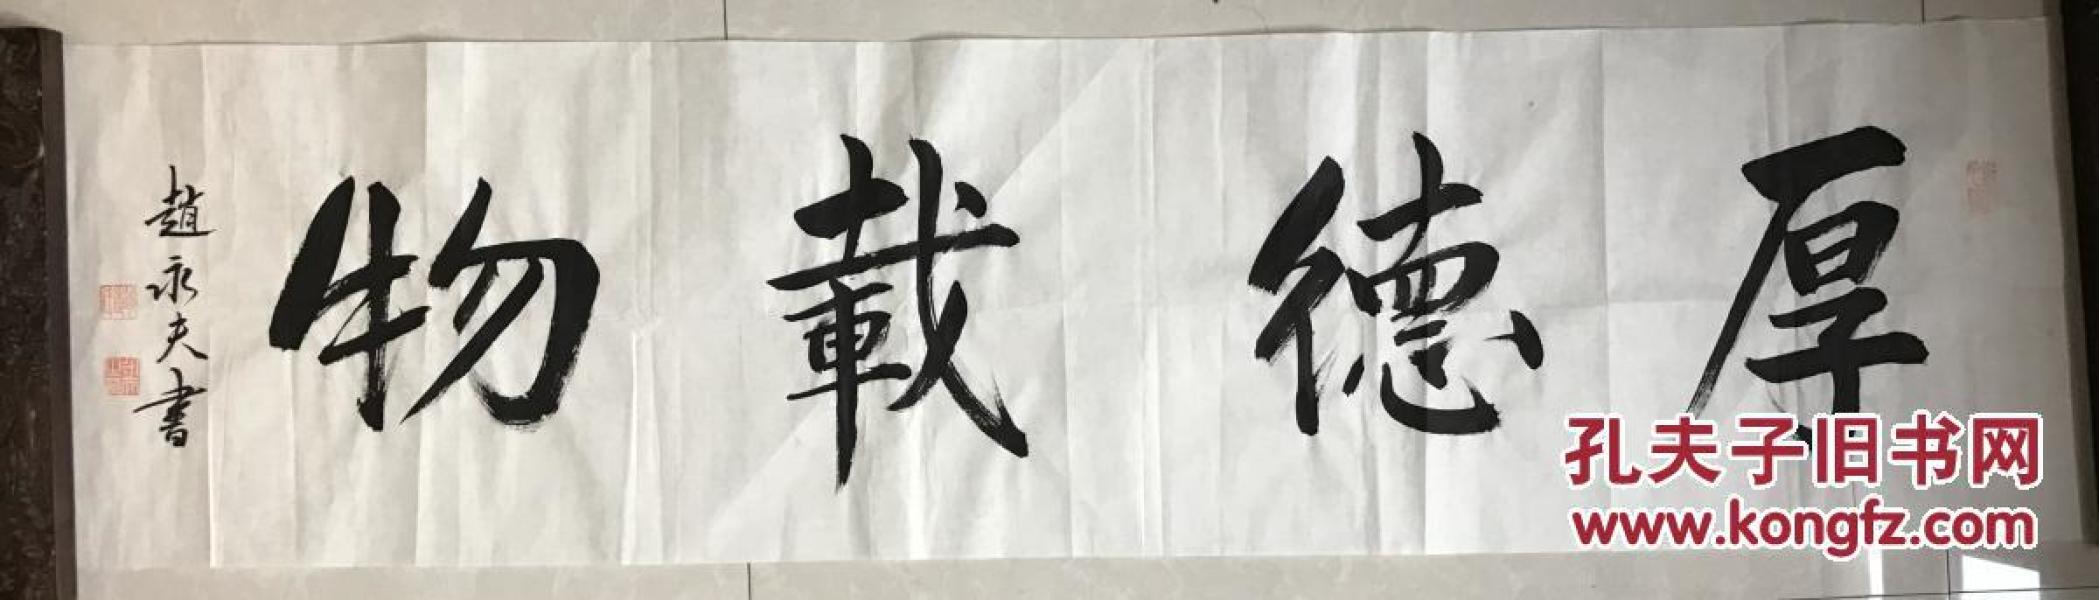 厚德載物
趙永夫書
孔夫子旧书网
www.kongfz.com